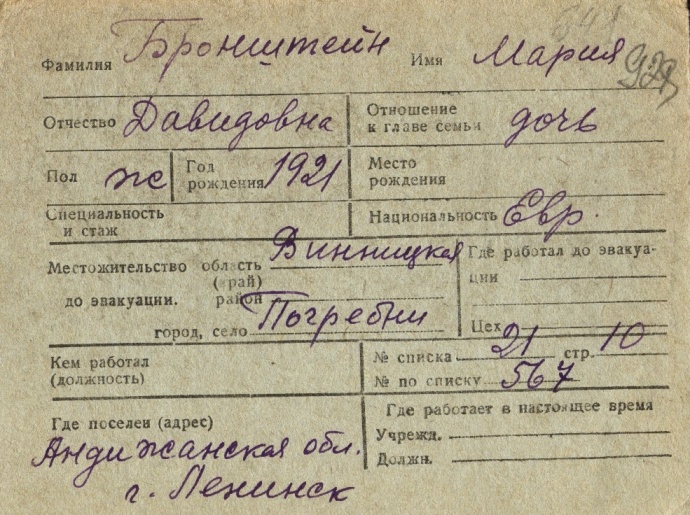 Фамилия Бронштейн Имя Мария
Отчество Давидовна Отношение к главе семьи дочь
Пол ж Год рождения 1921 Место рождения
Специальность и стаж Национальность Евр.
Местожительство область Винницкая Где работал до эвакуа-
(край) ции
до эвакуации. район
город, село Погребни Цех
Кем работал (должность) № списка 21 стр. 10
№ по списку 567
Где поселен (адрес) Где работает в настоящее время
Андижанская обл. Учрежд.
г. Ленинск Должн.